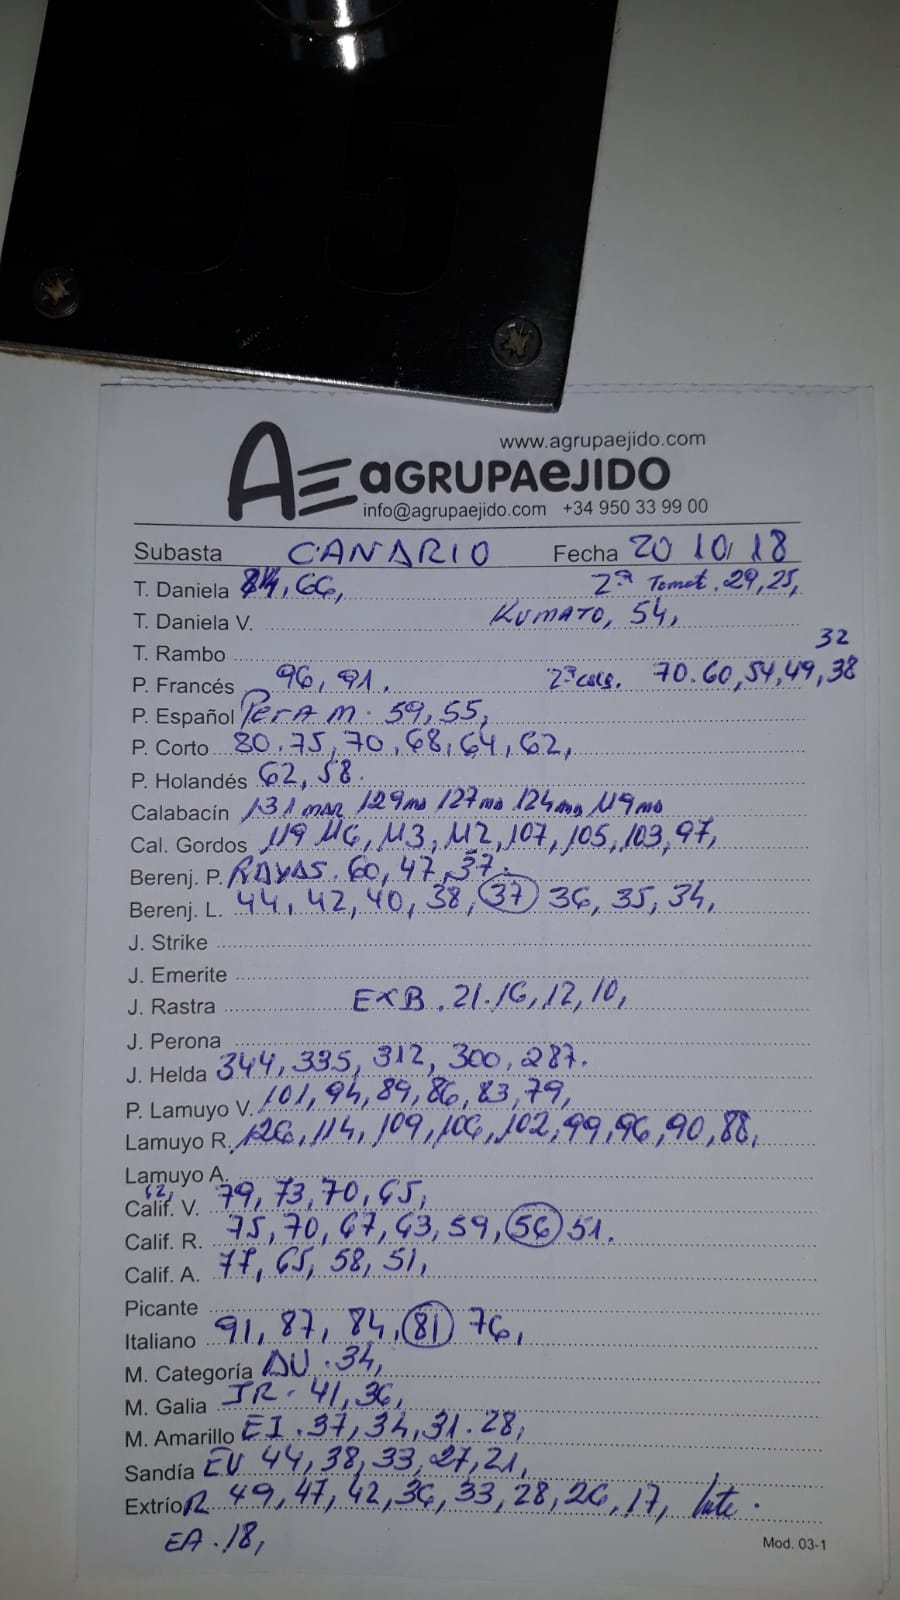 www.agrupaejido.com
AE aGRUPAeJIDO
info@agrupaejido.com +34 950 33 99 00
Subasta CANARIO Fecha 20 10/ 18
T. Daniela 84, 66, 2ª Tomat. 29, 25,
T. Daniela V. KUMATO, 54,
T. Rambo 32
P. Francés 96, 91. 2ª 70. 60, 54, 49, 38
P. Español Pera M. 59, 55,
P. Corto 80. 75, 70, 68, 64, 62,
P. Holandés 62, 58.
Calabacín 131 mar 129 ma 127 ma 124 ma, 119 ma
Cal. Gordos 119 116, 113, 112, 107, 105, 103, 97,
Berenj. P. RAYAS. 60, 47, 37.
Berenj. L. 44, 42, 40, 38, 37 36, 35, 34,
J. Strike
J. Emerite
J. Rastra EXB. 21. 16, 12, 10,
J. Perona
J. Helda 344, 335, 312, 300, 287.
P. Lamuyo V. 101, 94, 89, 86, 83, 79,
Lamuyo R. 126, 114, 109, 106, 102, 99, 96, 90, 88,
Lamuyo A.
62,
Calif. V. 79, 73, 70, 65,
Calif. R. 75, 70, 67, 63, 59, 56 51.
Calif. A. 77, 65, 58, 51,
Picante
Italiano 91, 87, 84, 81 76,
M. Categoría DU. 34,
M. Galia JR. 41, 36,
M. Amarillo EI. 37, 34, 31. 28,
Sandía EV 44, 38, 33, 27, 21,
Extrío R 49, 47, 42, 36, 33, 28, 26, 17,
EA. 18,
Mod. 03-1